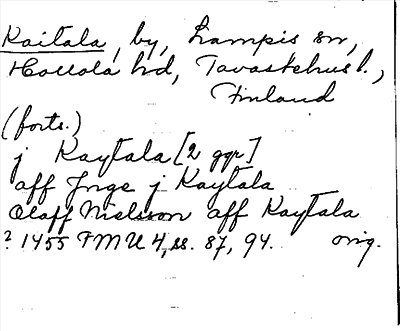 Kaitala, by, Lampis sn,
Hollola hd, Tavastehus l.,
Finland
(forts.)
j Kaytala [2 ggr]
aff Jnge j Kaytala
Olaff Nielsson aff Kaytala
? 1455 FMU 4, ss. 87, 94. orig.